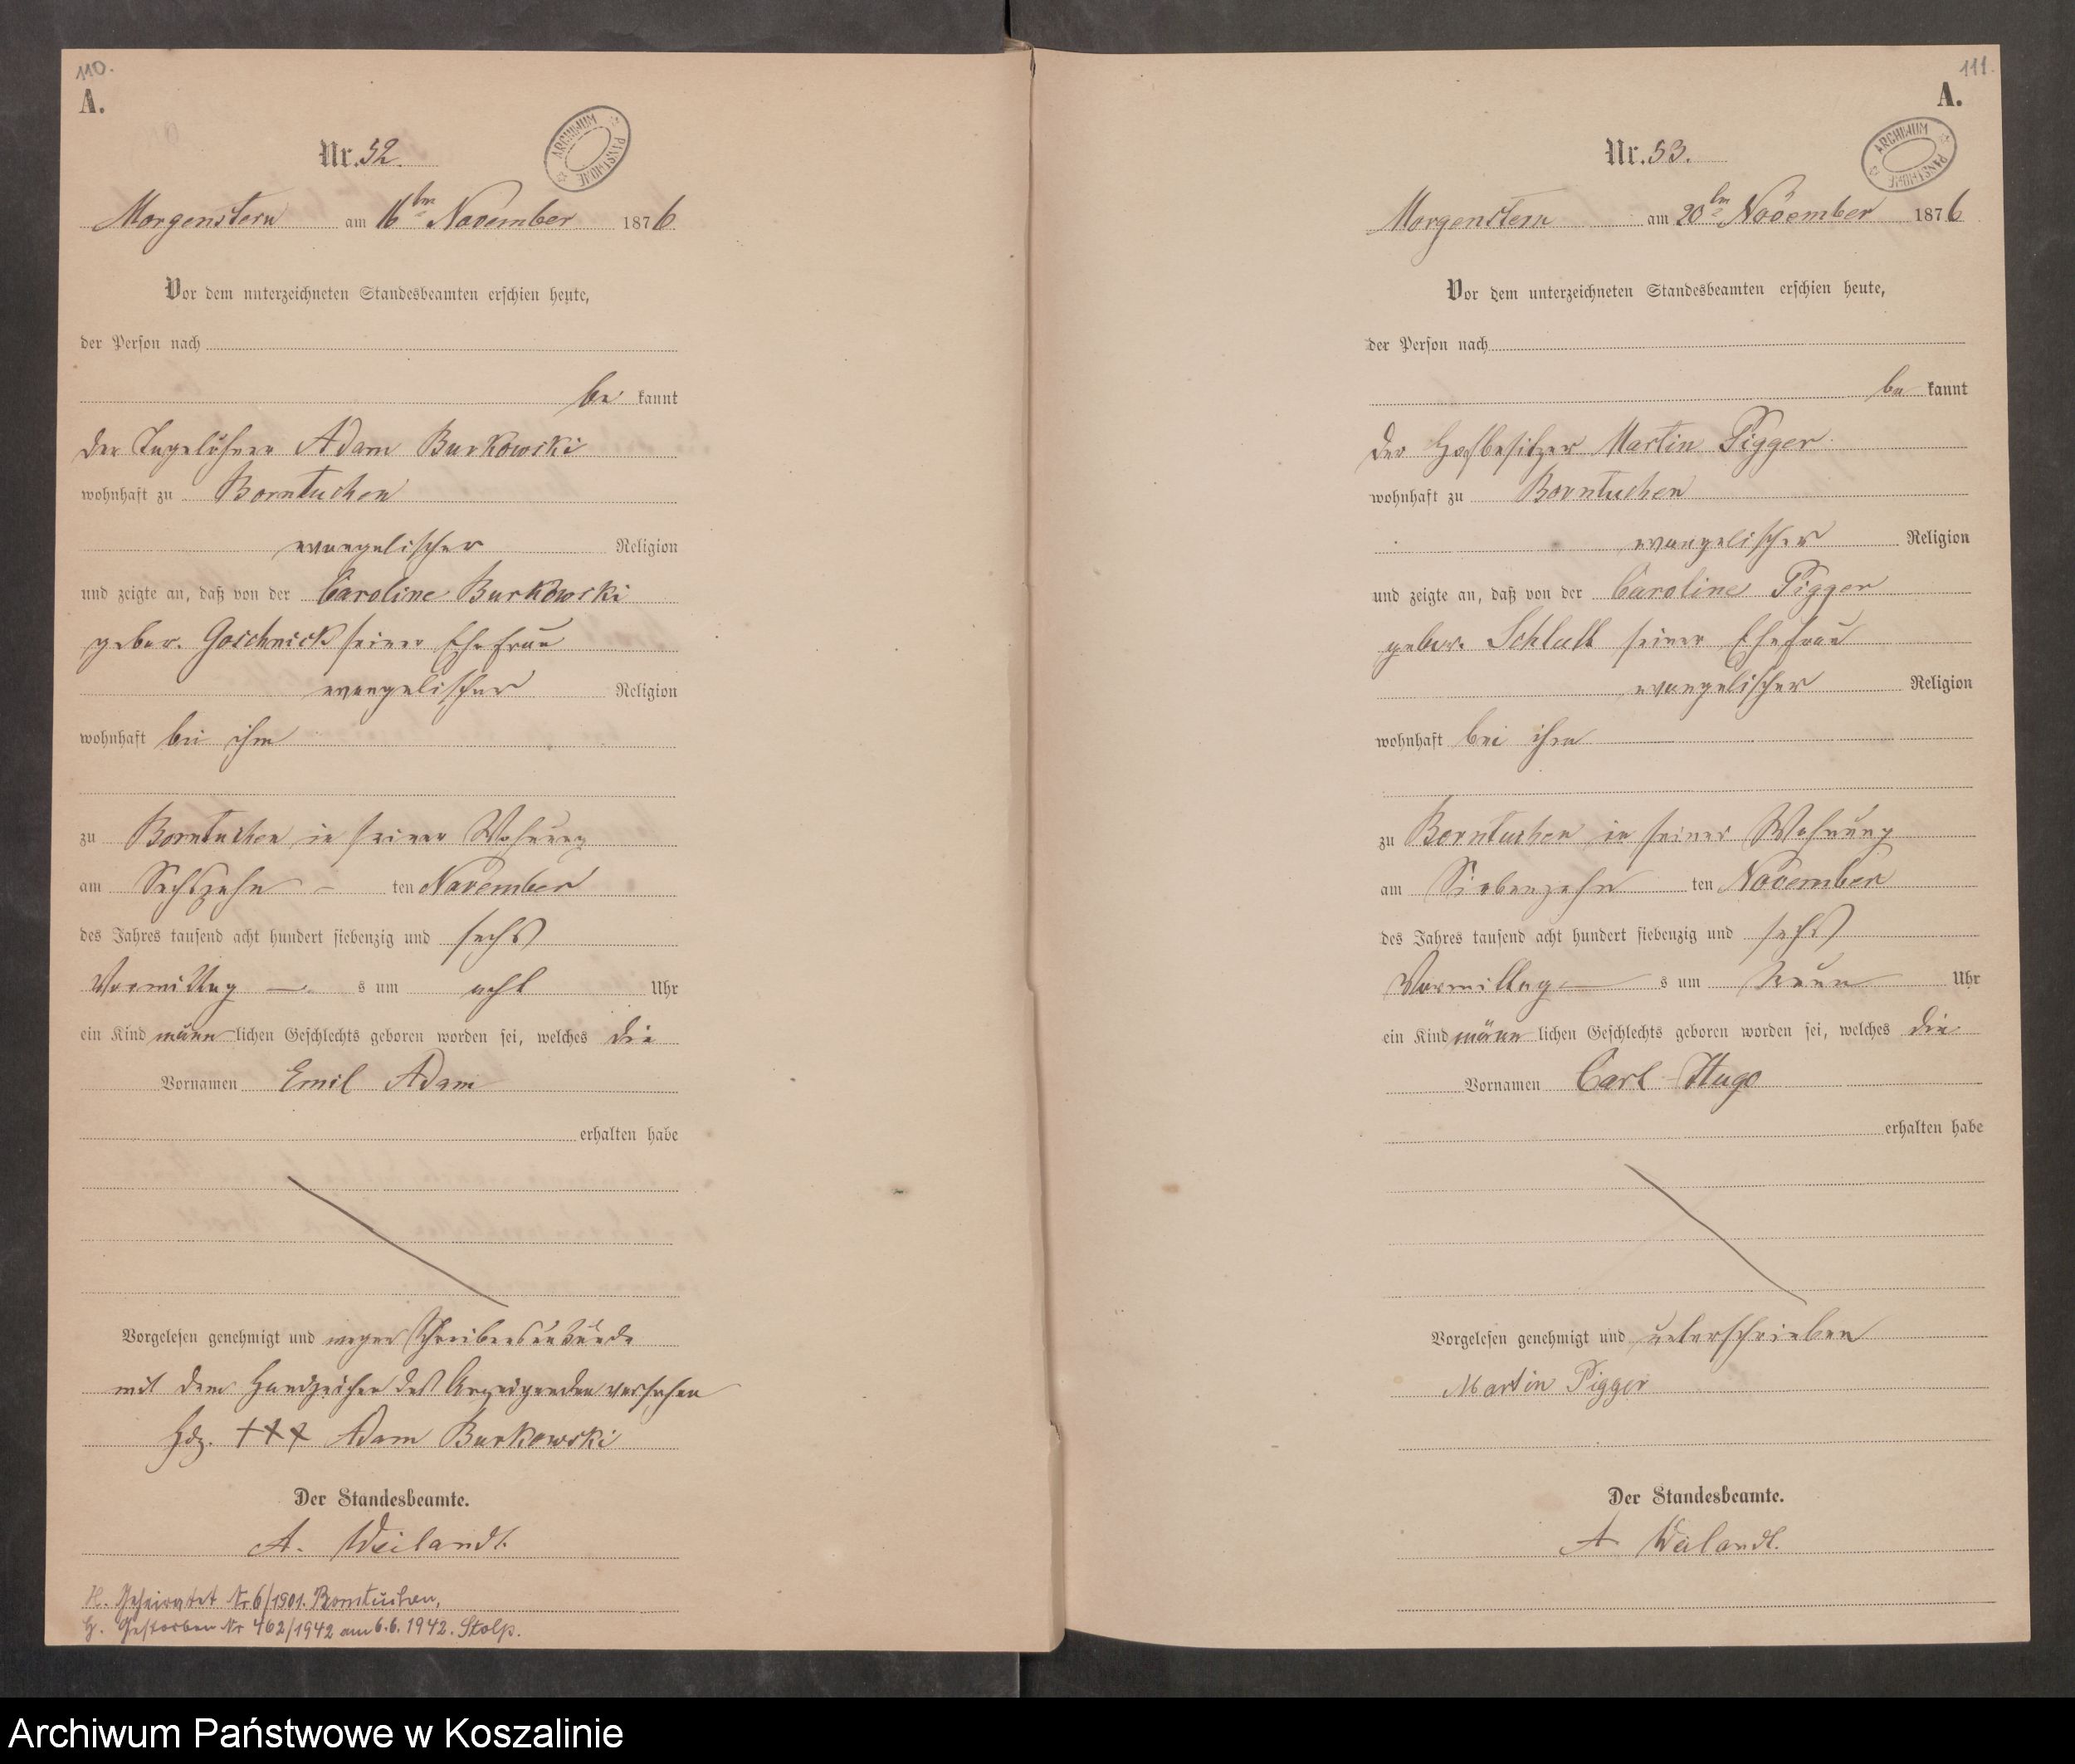 110.
A.
ARCHIWUM PAŃSTWOWE
Nr. 52.
Morgenstern am 16ten November 1876
Vor dem unterzeichneten Standesbeamten erschien heute,
der Person nach
be kannt
der Tagelöhner Adam Burkowski
wohnhaft zu Borntuchen
evangelischer Religion
und zeigte an, daß von der Caroline Burkowski
gebor. Goschnick seiner Ehefrau
evangelischer Religion
wohnhaft bei ihm
zu Borntuchen in seiner Wohnung
am Sechszehn – ten November
des Jahres tausend acht hundert siebenzig und sechs
Vormittag — s um acht Uhr
ein Kind männ lichen Geschlechts geboren worden sei, welches die
Vornamen Emil Adam
erhalten habe
Vorgelesen genehmigt und wegen Schreibensunkunde
mit dem Handzeichen des Anzeigenden versehen
Hdz. +++ Adam Burkowski
Der Standesbeamte.
A. Weilandt.
H. Geheiratet Nr. 6/1901. Borntuchen,
G. Gestorben Nr 462/1942 am 6.6.1942. Stolp.
111.
A.
ARCHIWUM PAŃSTWOWE
Nr. 53.
Morgenstern am 20ten November 1876
Vor dem unterzeichneten Standesbeamten erschien heute,
der Person nach
be kannt
der Hofbesitzer Martin Pigger
wohnhaft zu Borntuchen
evangelischer Religion
und zeigte an, daß von der Caroline Pigger
gebor. Schlutt seiner Ehefrau
evangelischer Religion
wohnhaft bei ihm
zu Borntuchen in seiner Wohnung
am Siebenzehn ten November
des Jahres tausend acht hundert siebenzig und sechs
Vormittag — s um neun Uhr
ein Kind männ lichen Geschlechts geboren worden sei, welches die
Vornamen Carl Hugo
erhalten habe
Vorgelesen genehmigt und unterschrieben
Martin Pigger
Der Standesbeamte.
A. Weilandt.
Archiwum Państwowe w Koszalinie